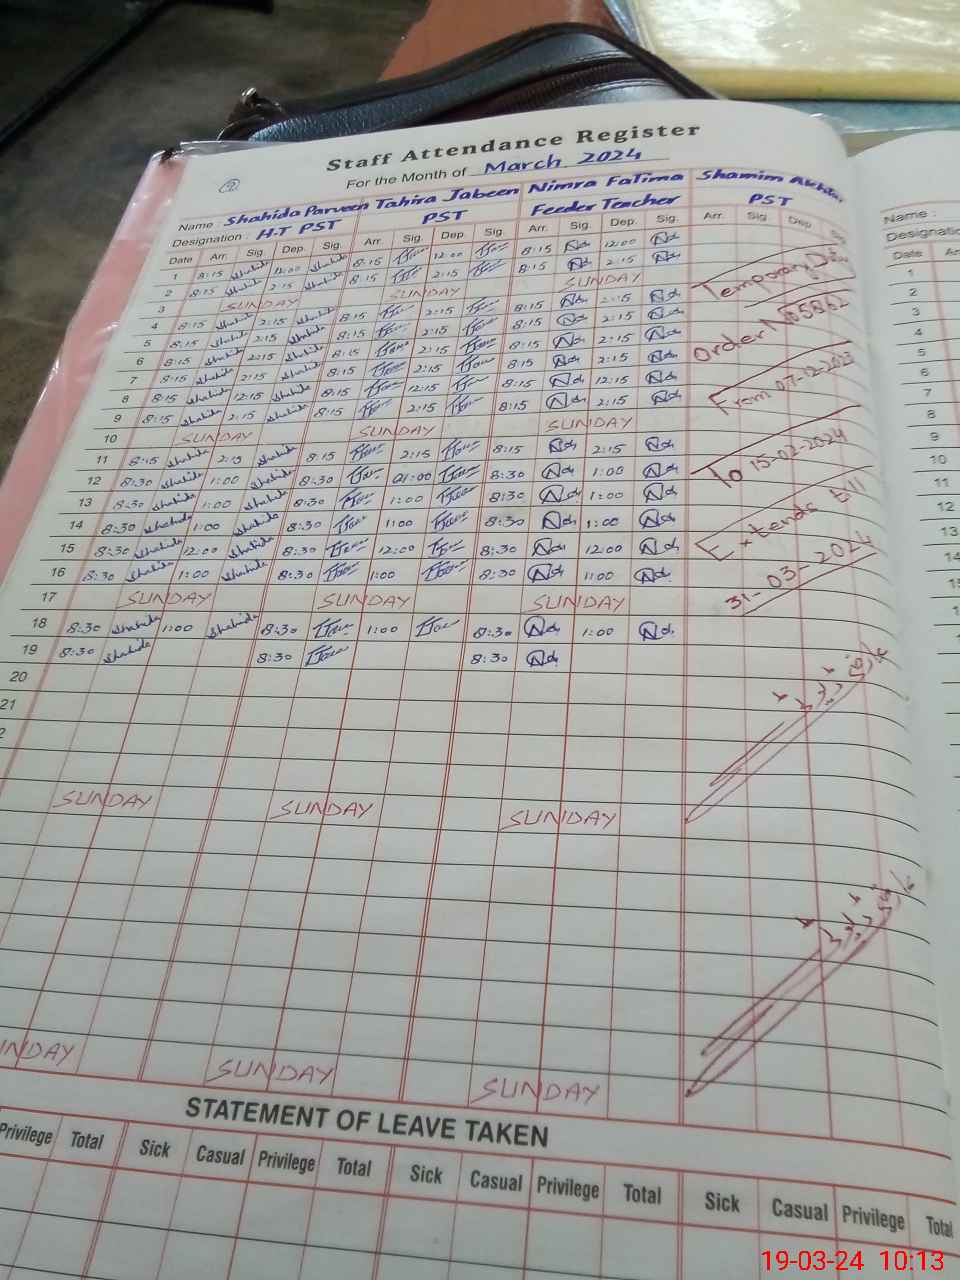 Staff Attendance Register
For the Month of March 2024
Name : Shahida Parveen Tahira Jabeen Nimra Fatima Shamim Akhtar
Designation : H.T PST PST Feeder Teacher PST
Date Arr. Sig. Dep. Sig. Arr. Sig. Dep. Sig. Arr. Sig. Dep. Sig. Arr. Sig. Dep. Sig.
1 8:15 Shahida 12:00 Shahida 8:15 12:00 8:15 12:00
2 8:15 Shahida 2:15 Shahida 8:15 2:15 8:15 2:15
3 SUNDAY SUNDAY SUNDAY
4 8:15 Shahida 2:15 Shahida 8:15 2:15 8:15 2:15
5 8:15 Shahida 2:15 Shahida 8:15 2:15 8:15 2:15
6 8:15 Shahida 2:15 Shahida 8:15 2:15 8:15 2:15
7 8:15 Shahida 2:15 Shahida 8:15 2:15 8:15 2:15
8 8:15 Shahida 12:15 Shahida 8:15 12:15 8:15 12:15
9 8:15 Shahida 2:15 Shahida 8:15 2:15 8:15 2:15
10 SUNDAY SUNDAY SUNDAY
11 8:15 Shahida 2:15 Shahida 8:15 2:15 8:15 2:15
12 8:30 Shahida 1:00 Shahida 8:30 01:00 8:30 1:00
13 8:30 Shahida 1:00 Shahida 8:30 1:00 8:30 1:00
14 8:30 Shahida 1:00 Shahida 8:30 1:00 8:30 1:00
15 8:30 Shahida 12:00 Shahida 8:30 12:00 8:30 12:00
16 8:30 Shahida 1:00 Shahida 8:30 1:00 8:30 1:00
17 SUNDAY SUNDAY SUNDAY
18 8:30 Shahida 1:00 Shahida 8:30 1:00 8:30 1:00
19 8:30 Shahida 8:30 8:30
20
21
2
SUNDAY SUNDAY SUNDAY
UNDAY SUNDAY SUNDAY
Temporary
Order No 5862
From 07-12-2023
To 15-02-2024
Extends till
31-03-2024
STATEMENT OF LEAVE TAKEN
Privilege Total Sick Casual Privilege Total Sick Casual Privilege Total Sick Casual Privilege Total
Name :
Designatio
Date
1
2
3
4
5
6
7
8
9
10
11
12
13
14
15
16
17
18
19-03-24 10:13